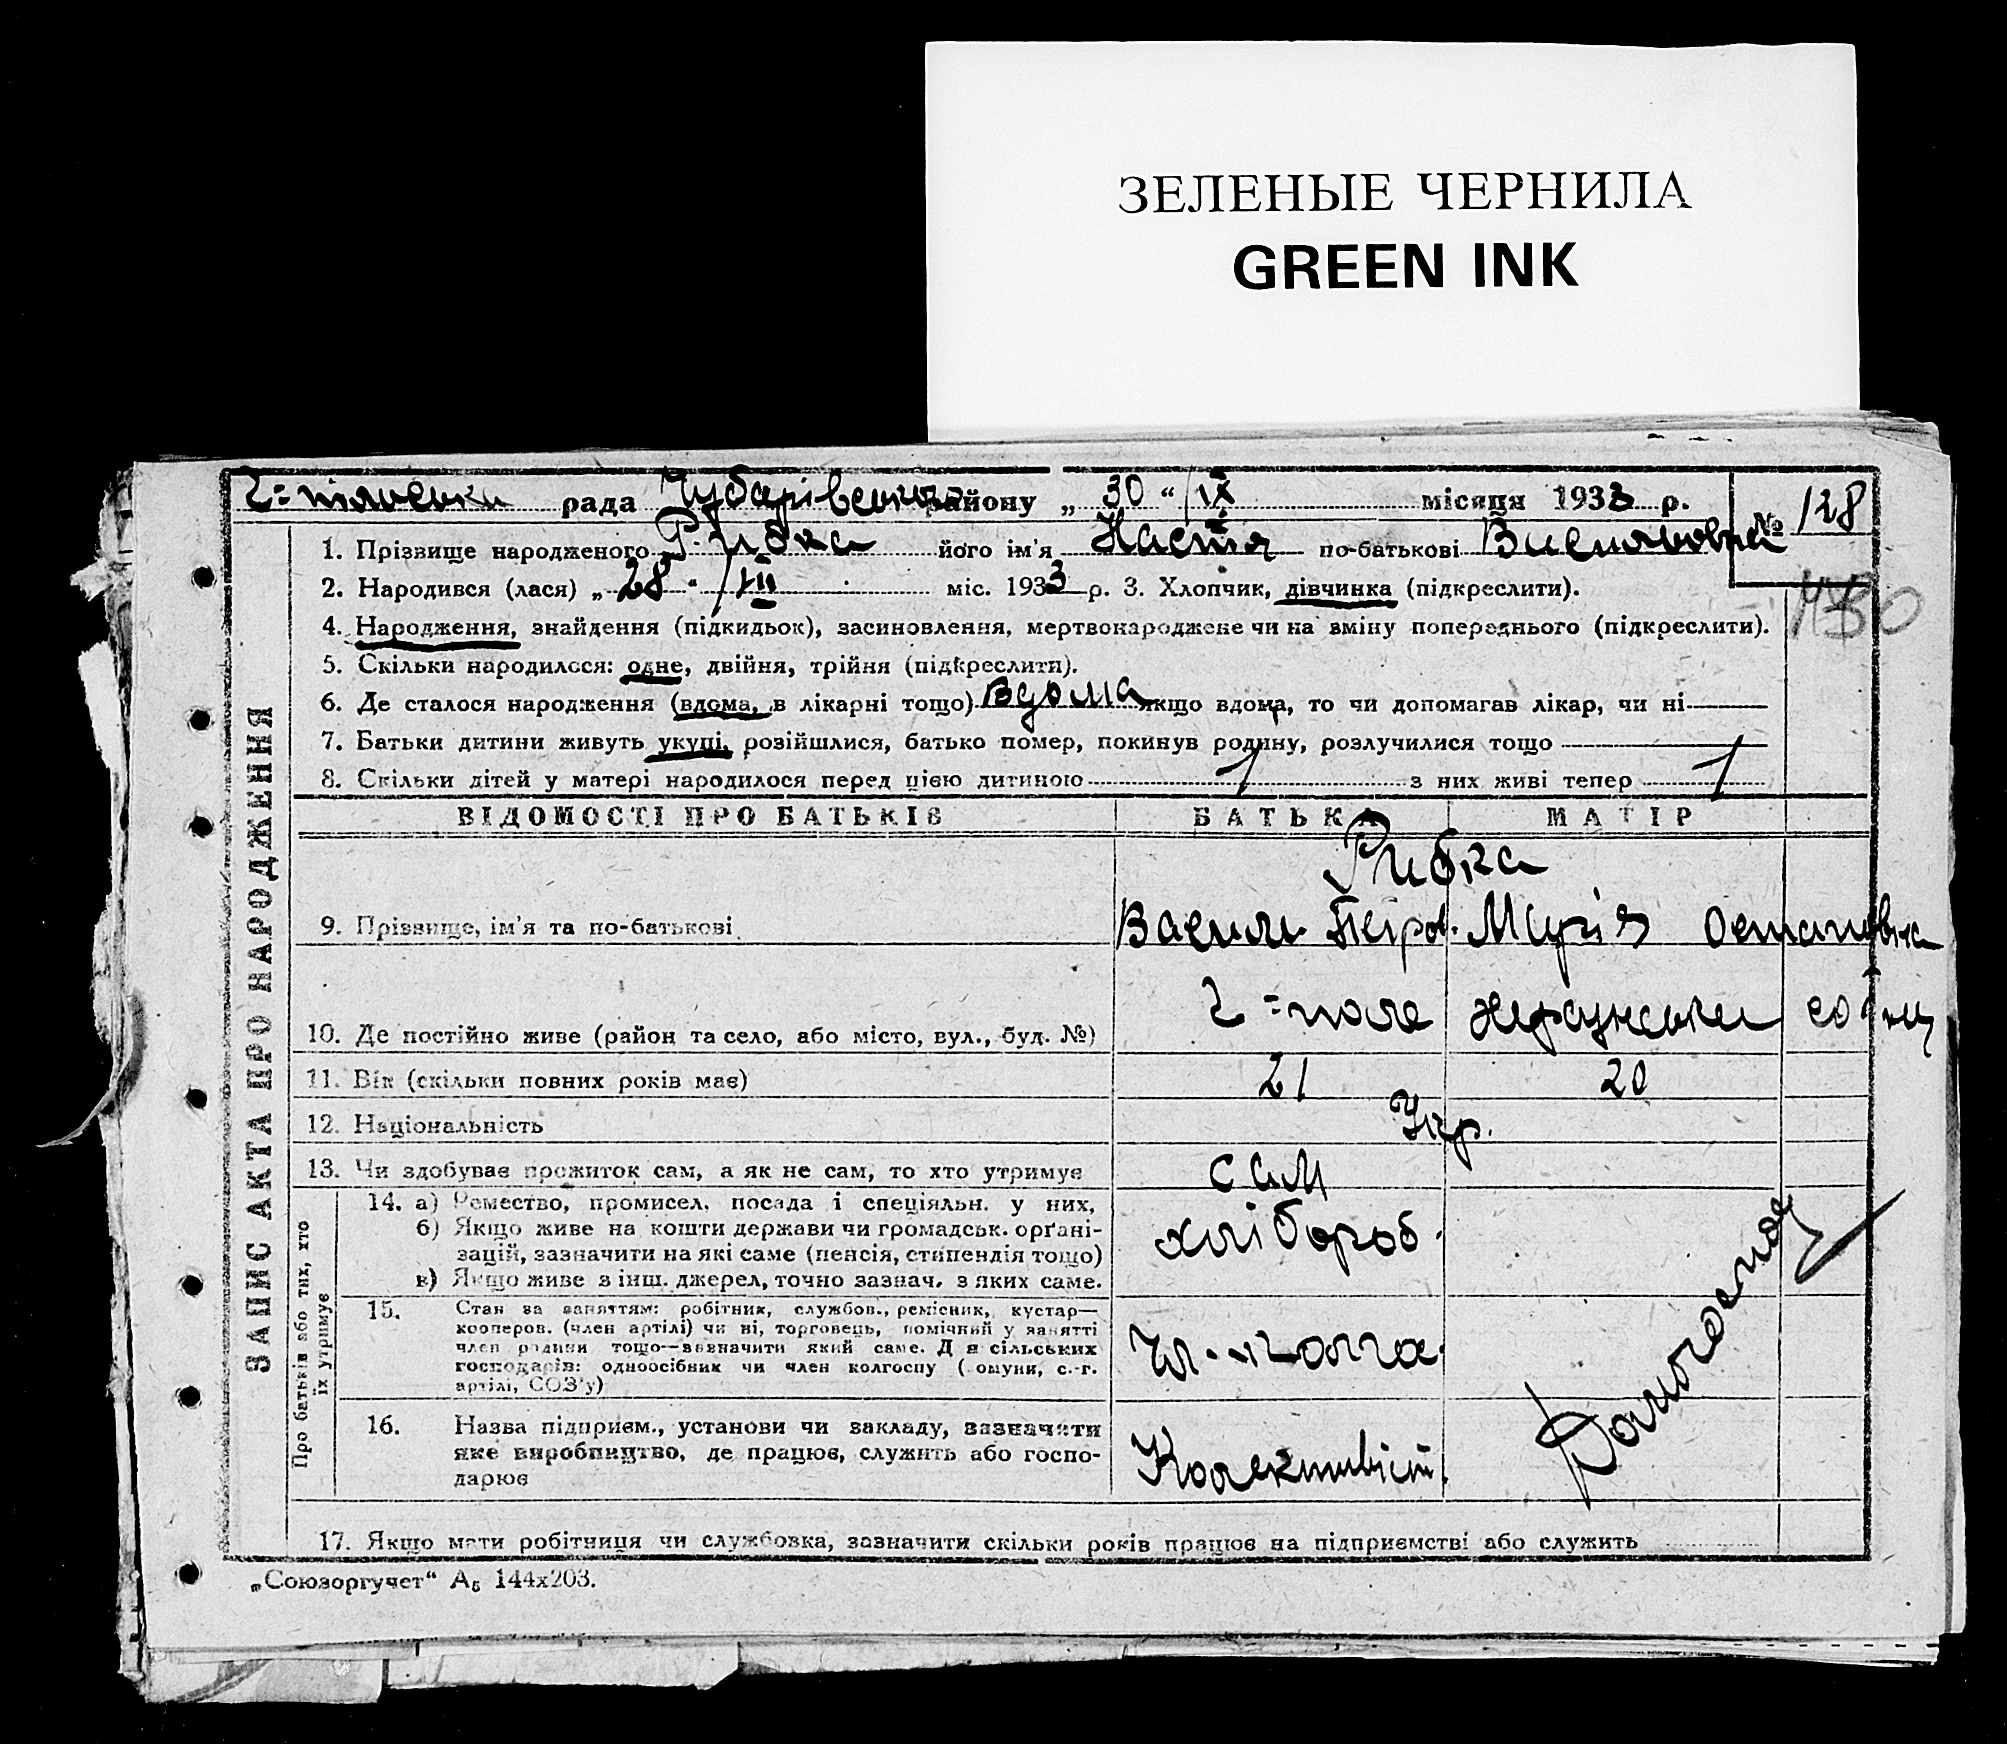 ЗЕЛЕНЫЕ ЧЕРНИЛА
GREEN INK
Г=пільська рада Чубарівського району „ 30 “ / IX місяця 1933 р. № 128
1. Прізвище народженого Рибка його ім'я Настя по-батькові Васильовна
2. Народився (лася) „ 28 “ / VIII міс. 1933 р. 3. Хлопчик, дівчинка (підкреслити).
4. Народження, знайдення (підкидьок), засиновлення, мертвонароджене чи на зміну попереднього (підкреслити).
5. Скільки народилося: одне, двійня, трійня (підкреслити).
6. Де сталося народження (вдома, в лікарні тощо) Вдома якщо вдома, то чи допомагав лікар, чи ні
7. Батьки дитини живуть укупі, розійшлися, батько помер, покинув родину, розлучилися тощо
8. Скільки дітей у матері народилося перед цією дитиною 1 з них живі тепер 1
ЗАПИС АКТА ПРО НАРОДЖЕННЯ
ВІДОМОСТІ ПРО БАТЬКІВ БАТЬКА МАТІР
Рибка
9. Прізвище, ім'я та по-батькові Василь Петров. Марія Остаповна
10. Де постійно живе (район та село, або місто, вул., буд. №) Г=поле
11. Вік (скільки повних років має) 21 20
12. Національність Укр.
13. Чи здобуває прожиток сам, а як не сам, то хто утримує сам
Про батьків або тих, хто їх утримує
14. а) Ремество, промисел, посада і спеціяльн. у них,
б) Якщо живе на кошти держави чи громадськ. орґані-
зацій, зазначити на які саме (пенсія, стипендія тощо)
в) Якщо живе з інш. джерел, точно зазнач. з яких саме.
хлібороб.
15. Стан за заняттям: робітник, службов., ремісник, кустар—
кооперов. (член артілі) чи ні, торговець, помічний у занятті
член родини тощо—визначити який саме. Для сільських
господарів: одноосібник чи член колгоспу (комуни, с.-г.
артілі, СОЗ'у)
16. Назва підприєм., установи чи закладу, зазначити
яке виробництво, де працює, служить або госпо-
дарює
Колективіст.
17. Якщо мати робітниця чи службовка, зазначити скільки років працює на підприємстві або служить
„Союзоргучет“ А5 144х203.